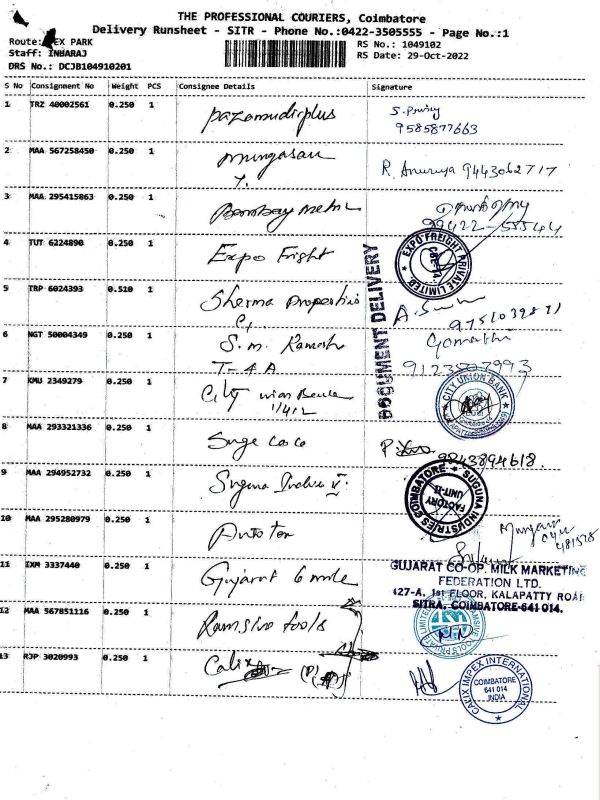 THE PROFESSIONAL COURIERS, Coimbatore
Delivery Runsheet - SITR - Phone No.:0422-3505555 - Page No.:1
Route: EX PARK
RS No.: 1049102
Staff: INBARAJ
RS Date: 29-Oct-2022
DRS No.: DCJB104910201
S No Consignment No Weight PCS Consignee Details Signature
1 TRZ 40002561 0.250 1 pazamudirplus
9585877663
2 MAA 567258450 0.250 1 murugasan R. Anurya 9443062717
Y.
3 MAA 295415863 0.250 1 Bombay metal
99422-58544
4 TUT 6224890 0.250 1 Expo Fright
EXPO FREIGHT PRIVATE LIMITED
DOCUMENT DELIVERY
5 TRP 6024393 0.510 1 Sherma Properties
9751039871
6 NGT 50004349 0.250 1 S. m. Ramesh Gomathi
T-4A 9123507993
7 KMU 2349279 0.250 1 City union Bank
CITY UNION BANK
8 MAA 293321336 0.250 1 Suge Coco 9843894618.
9 MAA 294952732 0.250 1 Suguna Indus V.
SUGUNA INDUSTRIES COIMBATORE
FACTORY UNIT-II
10 MAA 295280979 0.250 1 Auto Tex
11 IXM 3337440 0.250 1 Gujarat
GUJARAT CO-OP. MILK MARKETING
FEDERATION LTD.
427-A, 1st FLOOR, KALAPATTY ROAD
SITRA, COIMBATORE-641 014.
12 MAA 567851116 0.250 1 Ramsive tools
13 RJP 3020993 0.250 1 Calix (P)
CALIX IMPEX INTERNATIONAL
COIMBATORE
641 014
INDIA